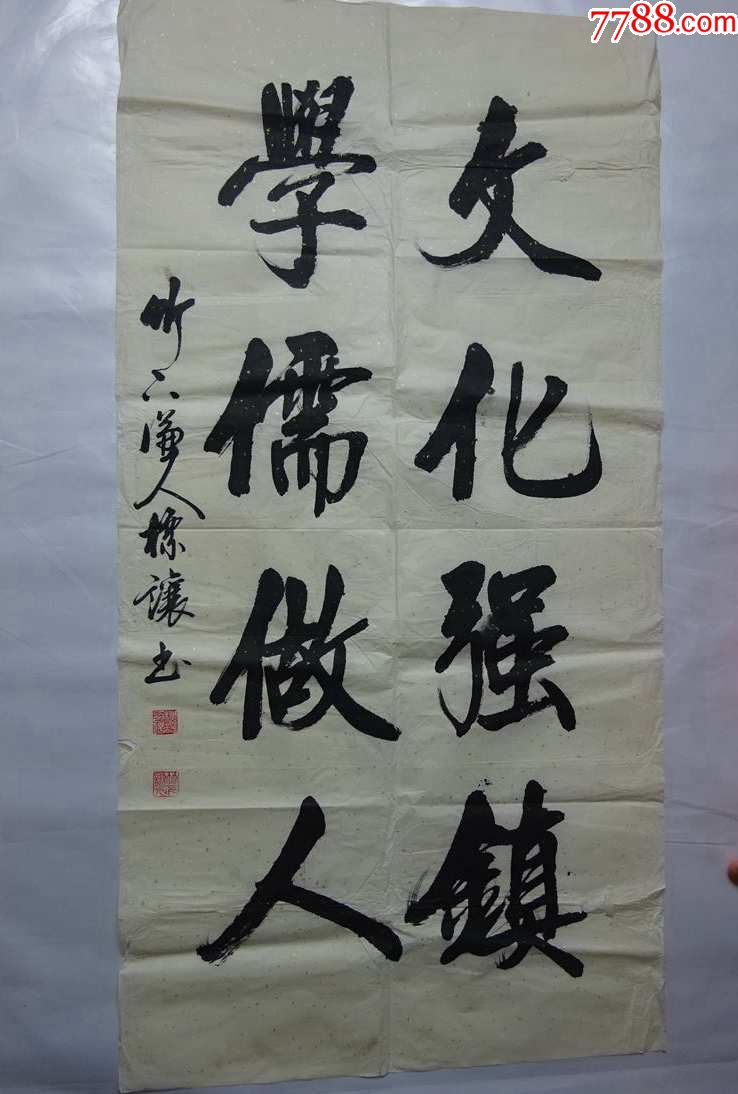 7788.com
文化强鎮
學儒做人
竹下濂人標讓书